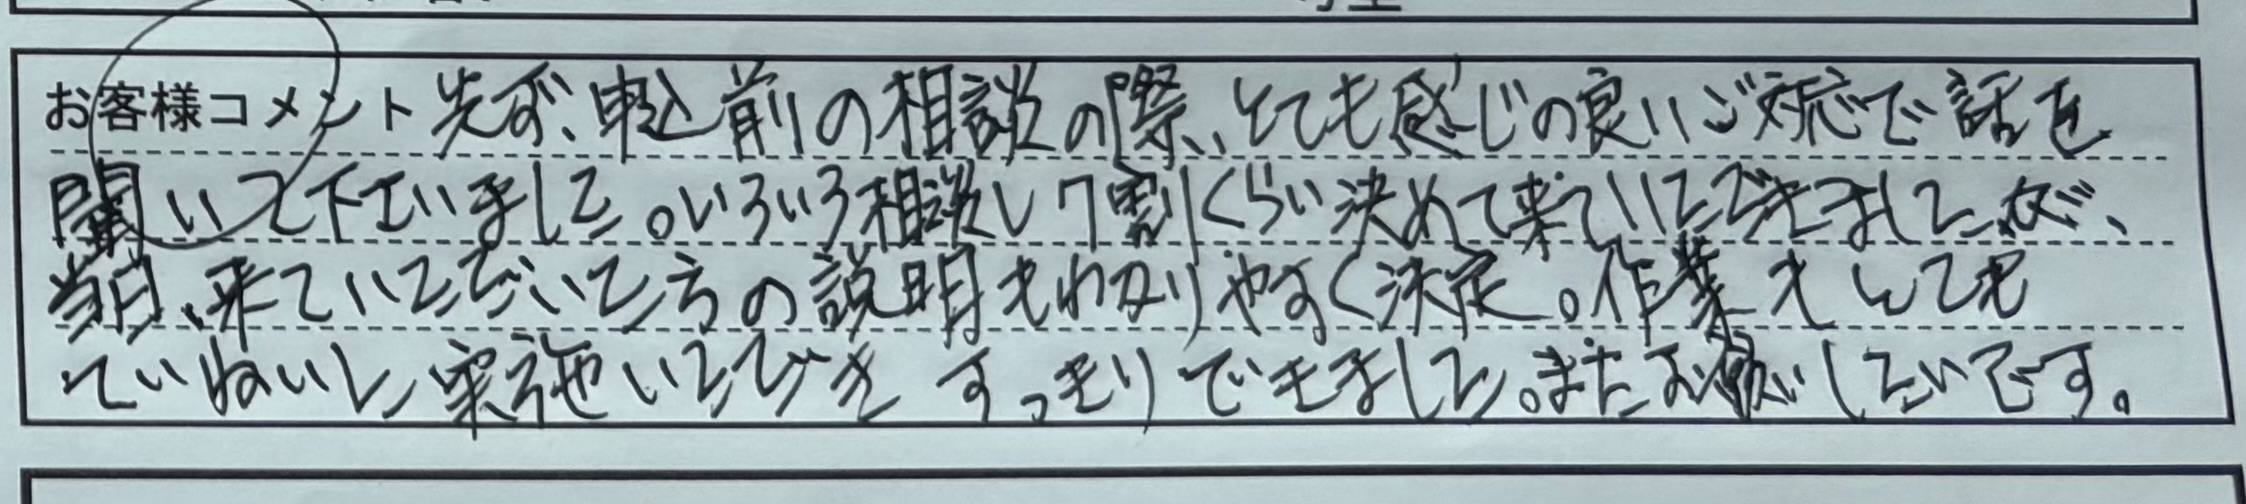 お客様コメント 先ず、申込前の相談の際、とても感じの良いご対応で話を
聞いて下さいました。いろいろ相談し7割くらい決めて来ていただきましたが、
当日、来ていただいた方の説明もわかりやすく決定。作業もとても
ていねいに実施いただき すっきりできました。またお願いしたいです。